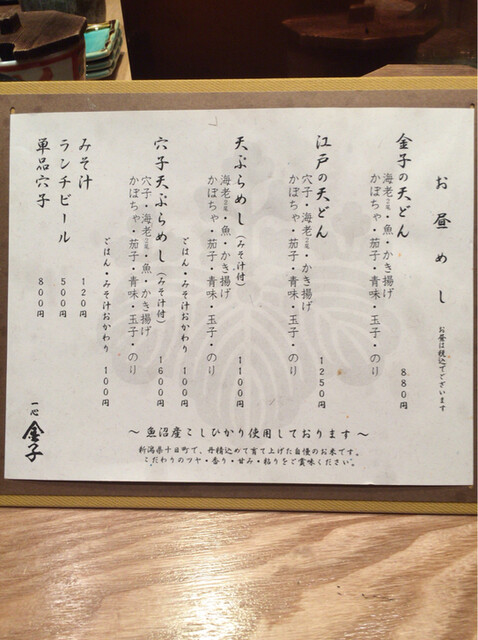 お昼めし
お昼は税込でございます
金子の天どん
海老二尾・魚・かき揚げ
かぼちゃ・茄子・青味・玉子・のり
880円
江戸の天どん
穴子・海老二尾・かき揚げ
かぼちゃ・茄子・青味・玉子・のり
1250円
天ぷらめし(みそ汁付)
海老二尾・魚・かき揚げ
かぼちゃ・茄子・青味・玉子・のり
1100円
ごはん・みそ汁おかわり 100円
穴子天ぷらめし(みそ汁付)
穴子・海老二尾・魚・かき揚げ
かぼちゃ・茄子・青味・玉子・のり
1600円
ごはん・みそ汁おかわり 100円
みそ汁 120円
ランチビール 500円
単品穴子 800円
~魚沼産こしひかり使用しております~
新潟県十日町で、丹精込めて育て上げた自慢のお米です。
こだわりのツヤ・香り・甘み・粘りをご賞味ください。
一心
金子